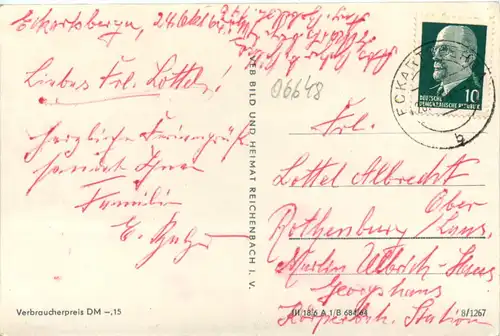 Eckartsberga, 24.
Liebes Frl. Lottel,
herzliche Feriengrüße
sendet Ihnen
Familie
E.
VEB BILD UND HEIMAT REICHENBACH I. V.
06648
DEUTSCHE
DEMOKRATISCHE REPUBLIK
10
ECKART
b
Frl.
Lottel Albrecht
Ober
Rothenburg/Laus.
Martin Ulbrich-Haus
Georghaus
Körperbeh. Station
Verbraucherpreis DM -,15
III/18/6 A 1/B 684/64
8/1267